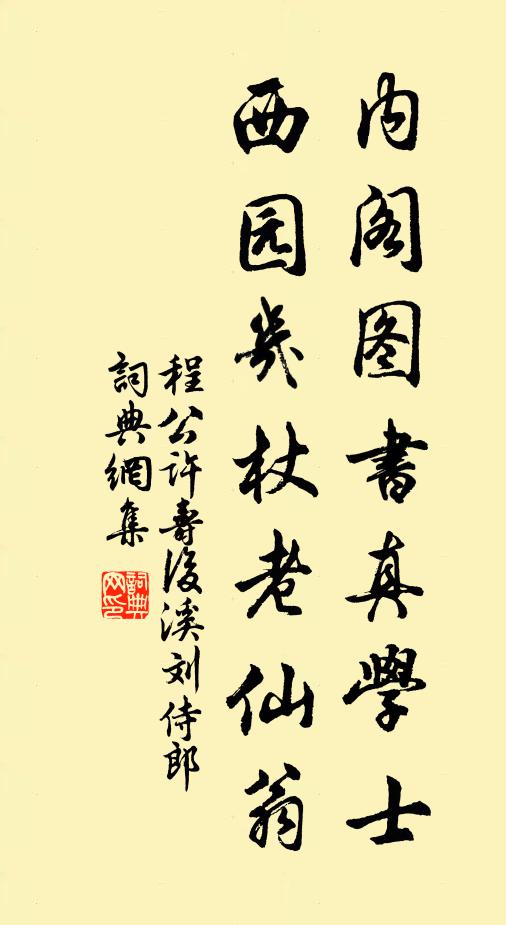 内阁图書真學士
西园幾杖老仙翁
程公许壽後溪刘侍郎
詞典網集
詞典网印